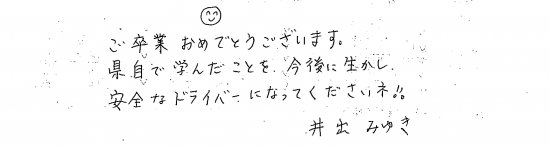 ご卒業おめでとうございます。
県自で学んだことを、今後に生かし、
安全なドライバーになってくださいネ!!
井出 みゆき